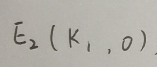 E₂(K₁,0)